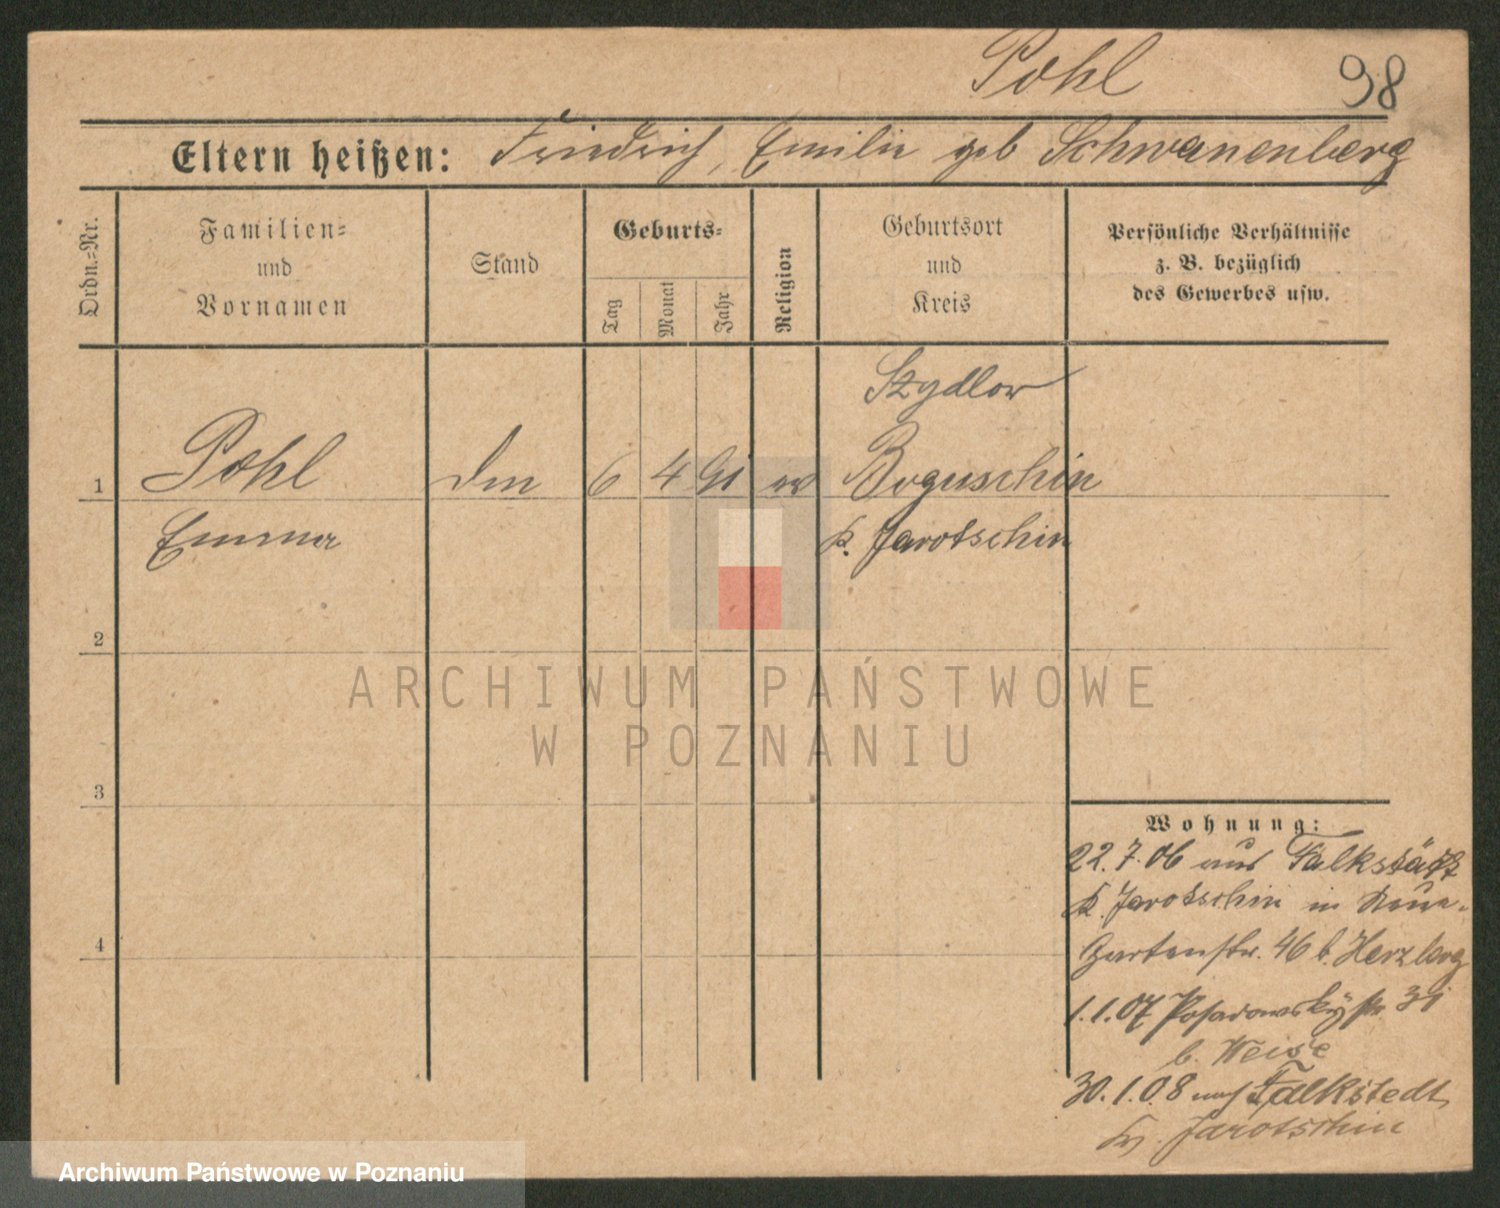 Pohl 98
Eltern heißen: Friedrich, Emilie geb Schwanenberg
Ordn.-Nr.
Familien-
und
Vornamen
Stand
Geburts-
Tag
Monat
Jahr
Religion
Geburtsort
und
Kreis
Persönliche Verhältnisse
z. B. bezüglich
des Gewerbes usw.
Szydlow
1 Pohl 6 4 91 ev Boguschin
Emma K. Jarotschin
2
3
4
Wohnung:
22.7.06 aus Falkstätt
K. Jarotschin in
Gartenstr. 46 b. Herzberg
1.1.07 Posadowskystr 31
b. Weise
30.1.08 nach Falkstedt
Kr. Jarotschin
ARCHIWUM PAŃSTWOWE
W POZNANIU
Archiwum Państwowe w Poznaniu